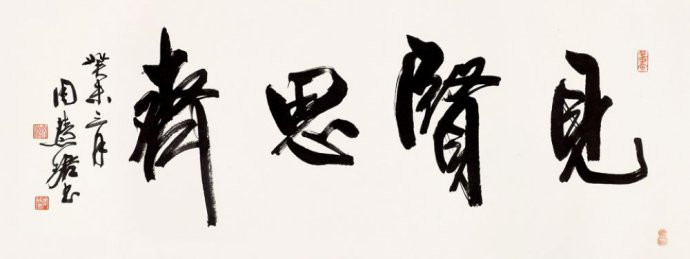 見賢思齊
癸未三月
周慧珺书